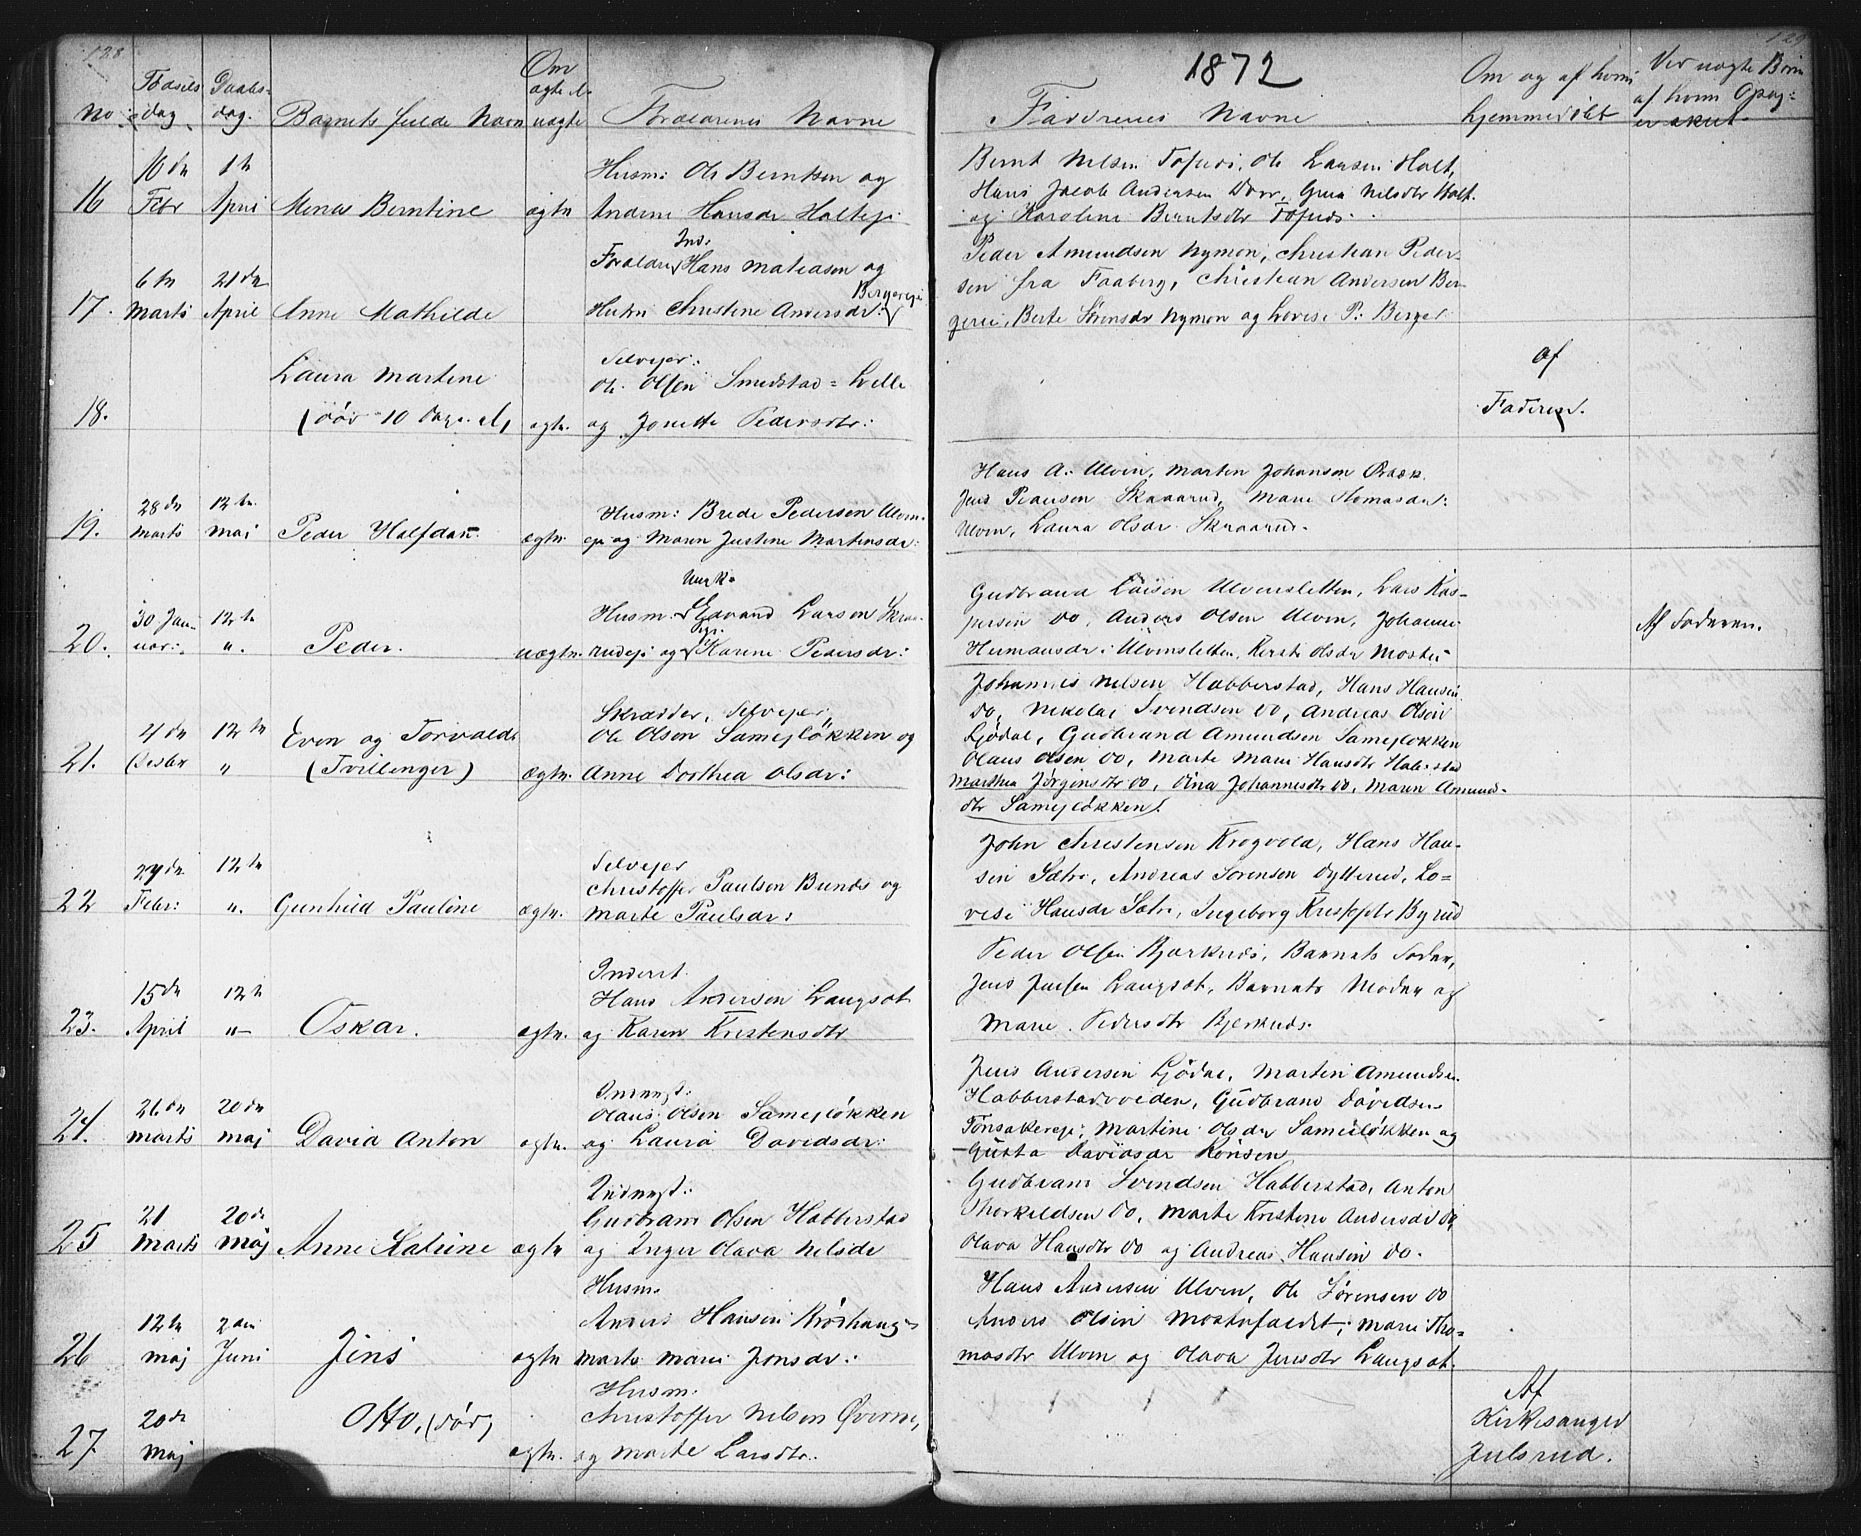 128
129
1872
No: Fødsels dag. Daabs- dag. Barnets fulde Navn Om ægte el. uægte Forældrenes Navne
Faddrenes Navne Om og af hvem hjemmedøbt Ved uægte Børn af hvem Opgi: er skeet.
16 Febr April Menas Berntine ægte
Husm: Ole Berntsen og
Andrine Hansdr Holtej:
Bernt Nilsen Tofsrud, Ole Larsen Holt,
Hans Jacob Andersen Dorr, Nilsdtr Holt.
og Karoline Berntsdtr
17. 6te Marts 21de April Anne Mathilde
Ind:
Forældre Hans Mateasen og
Hustru Christine Andersdr: Bergerej
Peder Amundsen Nymon, Christian Peder-
sen fra Faaberg, Christian Andersen Ber-
gerei, Berte Sørensdr Nymon og Lovise P: Berger
18. Laura Martine
(død 10 Dage el, ægte.
Selvejer:
Ole Olsen Smedstad = Lille
og Jonette Pedersdtr:
af
Faderen.
19. 28de Marts 12te Maj Peder Halfdan ægte.
Husm: Brede Pedersen Ulvin-
ej og Maren Justine Martinsdr:
Hans A. Ulvin, Martin Johansen Bræk
Jens Pedersen Skaarud, Marie Tomasdr:
Ulvin, Laura Olsdr Skraarud.
20. 30 Jan- uar: 12te ". Peder. uægte.
Unrk.
Husm. Edvard Larsen Skraa-
Pige.
rudej og Karene Pedersdr:
Gudbrand Larsen Ulvensletten, Lars Kas-
persen do, Anders Olsen Ulvin, Johanne
Hermansdr: Ulvensletten, Kersti Olsdr Moster
Af Faderen.
21. 4de Desbr 12te " Even og Torvald
(Tvillinger) Ægte.
Skrædder, Selvejer,
Ole Olsen Samejløkken og
Anne Dorthea Olsdr:
Johannes Nilsen Habberstad, Hans Hansen
do, Nikolai Svendsen do, Andreas Olsen
Ljødal, Gudbrand Amundsen Samejløkken
Olaus Olsen do, Marte Marie Hansdtr Haberstad
Marthea Jørgensdtr do, Dina Johannesdtr do, Maren Amund-
dtr Samejløkken.
22 27de Febr: 12te ". Gunhild Pauline ægte.
Selvejer
Christoffer Paulsen Bunds og
Marte Paulsdr:
John Christensen Krogvold, Hans Han-
sen Sætre, Andreas Sørensen Dytterud, Lo-
vise Hansdr Sætre, Ingeborg Byrud
23. 15de April 12te "- Oskar. ægte.
Inderst
Hans Andersen Langsæt
og Karen Kristensdtr
Peder Olsen Bjerkeds, Barnets Fader,
Jens Jensen Langsæt, Barnets Moder og
Marie Pedersdtr Bjerkeds.
24. 26de Marts 20de Maj David Anton ægte.
Inderst:
Olaus Olsen Samejløkken
og Laura Davidsdr:
Jens Andersen Ljødal, Martin Amundsen
Habberstadvolden, Gudbrand Davidsen
Tønsakerej: Martine Olsdr Samejløkken og
Gusta Davidsdr
25 21 Marts 20de Maj Anne Katrine ægte
Inderst:
Gudbrand Olsen Habberstad
og Inger Olava Nilsdr
Gudbrand Svendsen Habberstad, Anton
Thorkildsen do, Marte Kristine Andersdr do,
Olava Hansdtr do og Andreas Hansen do.
26 12te Maj 2den Juni Jens ægte
Husm.
Anders Hansen
Marte Marie Jonsdr:
Hans Andersen Ulvin, Ole Sørensen do
Anders Olsen Mosterfaldet; Marie Tho-
masdtr Ulvin og Olava Jensdtr Langsæt.
27. 20de Maj Otto, (død) ægte.
Husm:
Christoffer Nilsen
og Marte Larsdtr.
Af
Kirkesanger
Julsrud.